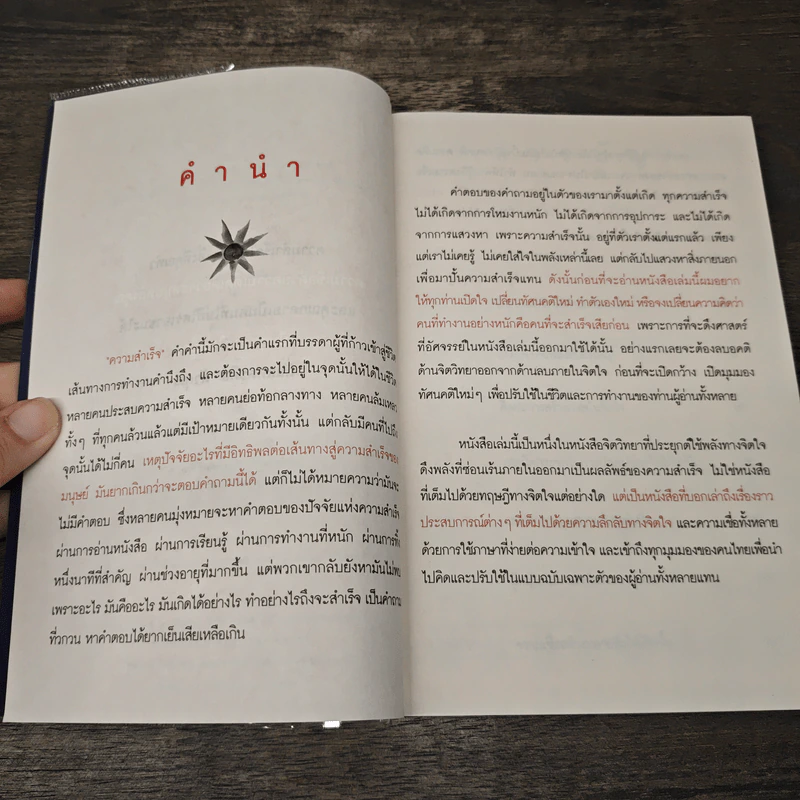 คำนำ
"ความสำเร็จ" คำคำนี้มักจะเป็นคำแรกที่บรรดาผู้ที่ก้าวเข้าสู่ชีวิต
เส้นทางการทำงานคำนึงถึง และต้องการจะไปอยู่ในจุดนั้นให้ได้ในชีวิต
หลายคนประสบความสำเร็จ หลายคนย่อท้อกลางทาง หลายคนล้มเหลว
ทั้งๆ ที่ทุกคนล้วนแล้วแต่มีเป้าหมายเดียวกันทั้งนั้น แต่กลับมีคนที่ไปถึง
จุดนั้นได้ไม่กี่คน เหตุปัจจัยอะไรที่มีอิทธิพลต่อเส้นทางสู่ความสำเร็จของ
มนุษย์ มันยากเกินกว่าจะตอบคำถามนี้ได้ แต่ก็ไม่ได้หมายความว่ามันจะ
ไม่มีคำตอบ ซึ่งหลายคนมุ่งหมายจะหาคำตอบของปัจจัยแห่งความสำเร็จ
ผ่านการอ่านหนังสือ ผ่านการเรียนรู้ ผ่านการทำงานที่หนัก ผ่านการทิ้ง
หนึ่งนาทีที่สำคัญ ผ่านช่วงอายุที่มากขึ้น แต่พวกเขากลับยังหามันไม่พบ
เพราะอะไร มันคืออะไร มันเกิดได้อย่างไร ทำอย่างไรถึงจะสำเร็จ เป็นคำถาม
ที่วกวน หาคำตอบได้ยากเย็นเสียเหลือเกิน
คำตอบของคำถามอยู่ในตัวของเรามาตั้งแต่เกิด ทุกความสำเร็จ
ไม่ได้เกิดจากการโหมงานหนัก ไม่ได้เกิดจากการอุปการะ และไม่ได้เกิด
จากการแสวงหา เพราะความสำเร็จนั้น อยู่ที่ตัวเราตั้งแต่แรกแล้ว เพียง
แต่เราไม่เคยรู้ ไม่เคยใส่ใจในพลังเหล่านี้เลย แต่กลับไปแสวงหาสิ่งภายนอก
เพื่อมาปั้นความสำเร็จแทน ดังนั้นก่อนที่จะอ่านหนังสือเล่มนี้ผมอยาก
ให้ทุกท่านเปิดใจ เปลี่ยนทัศนคติใหม่ ทำตัวเองใหม่ หรือจงเปลี่ยนความคิดว่า
คนที่ทำงานอย่างหนักคือคนที่จะสำเร็จเสียก่อน เพราะการที่จะดึงศาสตร์
ที่อัศจรรย์ในหนังสือเล่มนี้ออกมาใช้ได้นั้น อย่างแรกเลยจะต้องลบอคติ
ด้านจิตวิทยาออกจากด้านลบภายในจิตใจ ก่อนที่จะเปิดกว้าง เปิดมุมมอง
ทัศนคติใหม่ๆ เพื่อปรับใช้ในชีวิตและการทำงานของท่านผู้อ่านทั้งหลาย
หนังสือเล่มนี้เป็นหนึ่งในหนังสือจิตวิทยาที่ประยุกต์ใช้พลังทางจิตใจ
ดึงพลังที่ซ่อนเร้นภายในออกมาเป็นผลลัพธ์ของความสำเร็จ ไม่ใช่หนังสือ
ที่เต็มไปด้วยทฤษฎีทางจิตใจแต่อย่างใด แต่เป็นหนังสือที่บอกเล่าถึงเรื่องราว
ประสบการณ์ต่างๆ ที่เต็มไปด้วยความลึกลับทางจิตใจ และความเชื่อทั้งหลาย
ด้วยการใช้ภาษาที่ง่ายต่อความเข้าใจ และเข้าถึงทุกมุมมองของคนไทยเพื่อนำ
ไปคิดและปรับใช้ในแบบฉบับเฉพาะตัวของผู้อ่านทั้งหลายแทน